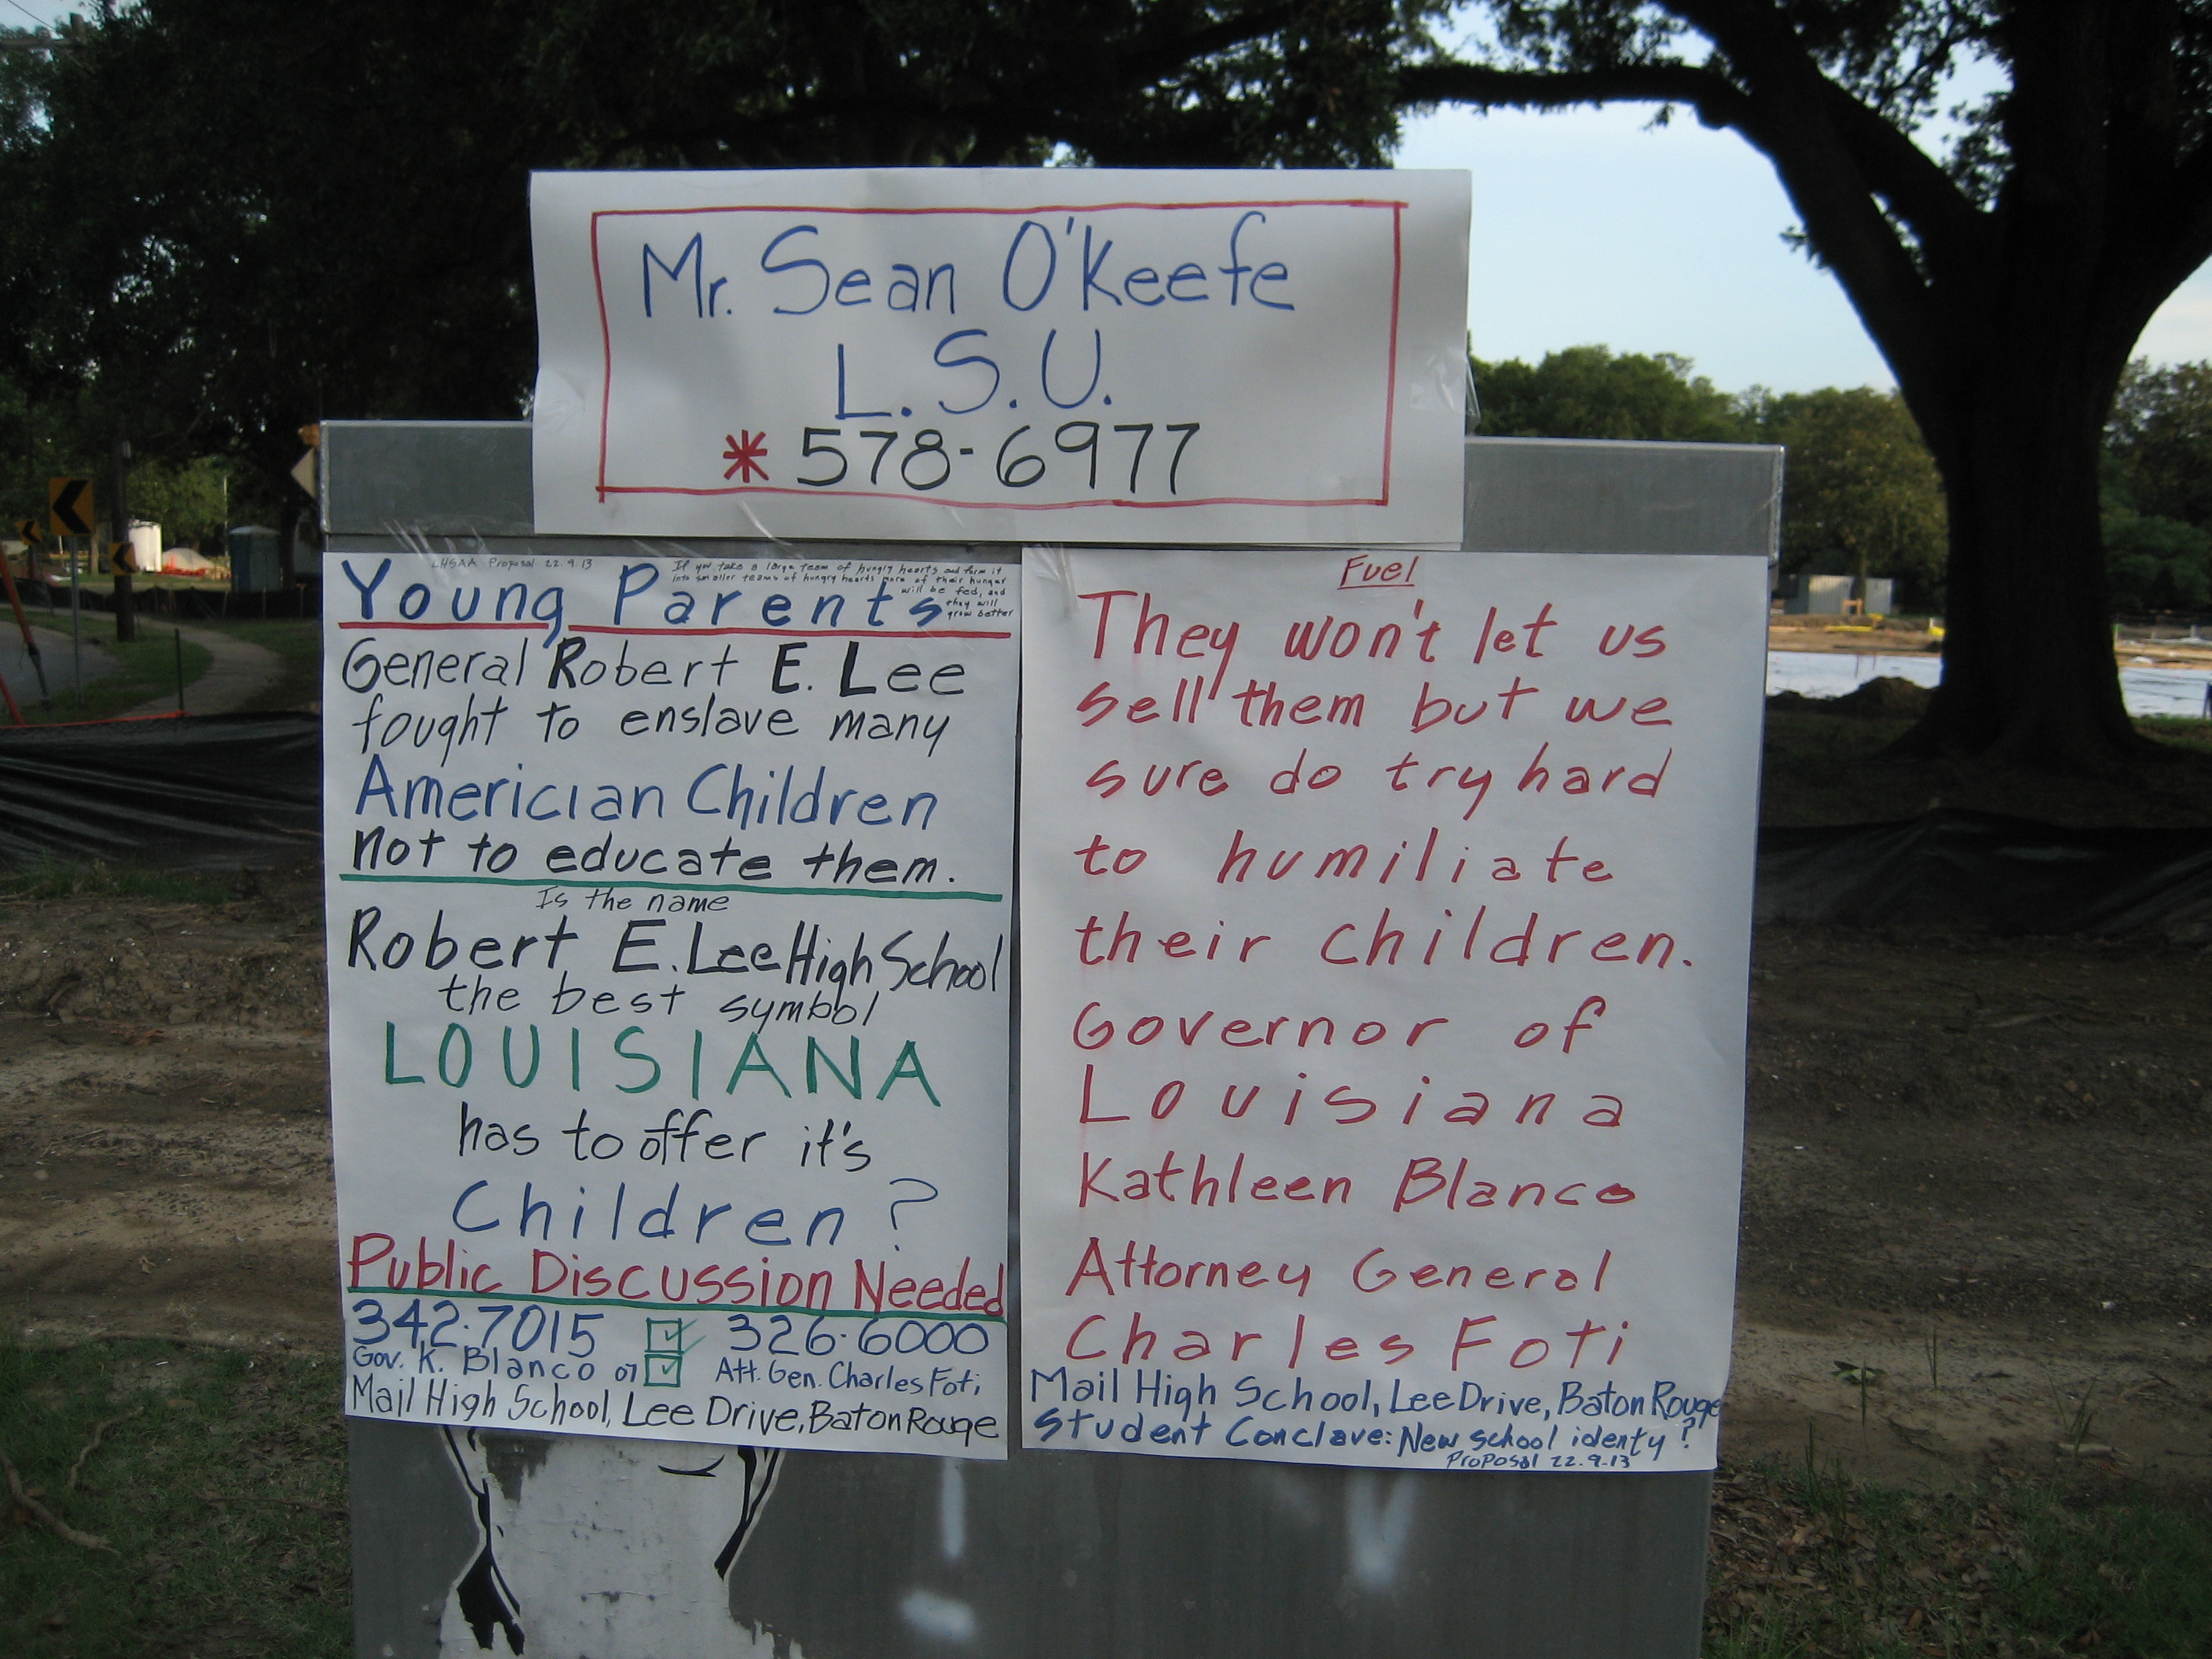 Mr. Sean O'Keefe
L.S.U.
* 578-6977
LHSAA Proposal 22.9.13
If you take a large team of hungry hearts and form it
into smaller teams of hungry hearts more of their hunger
will be fed, and
they will
grow better
Young Parents
General Robert E. Lee
fought to enslave many
Americian Children
not to educate them.
Is the name
Robert E. Lee High School
the best symbol
LOUISIANA
has to offer it's
Children?
Public Discussion Needed
342-7015 326-6000
Gov. K. Blanco or Att. Gen. Charles Foti
Mail High School, Lee Drive, Baton Rouge
Fuel
They won't let us
sell them but we
sure do try hard
to humiliate
their children.
Governor of
Louisiana
Kathleen Blanco
Attorney General
Charles Foti
Mail High School, Lee Drive, Baton Rouge
Student Conclave: New school identy?
Proposal 22.9.13